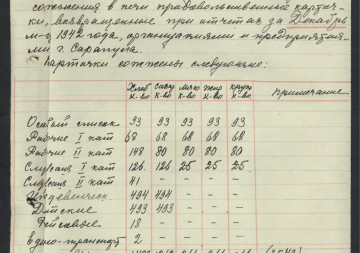 сожжения в печи продовольственных карточ-
ки, возвращенные при отчетах за Декабрь
м-ц 1942 года, организациями и предприятия-
ми г. Сарапула.
Карточки сожжены следующие:
Хлеб к-во Сахар к-во мясо к-во жир к-во крупа к-во примечание
Особый список 93 93 93 93 93
Рабочие I кат 68 68 68 68 68
Рабочие II кат 148 80 80 80 80
Служащ I кат 126 126 25 25 25
Служащ II кат 41 -
Иждивенческ. 494 494
Детские 493 493
Рейсовые 18 -
2 -